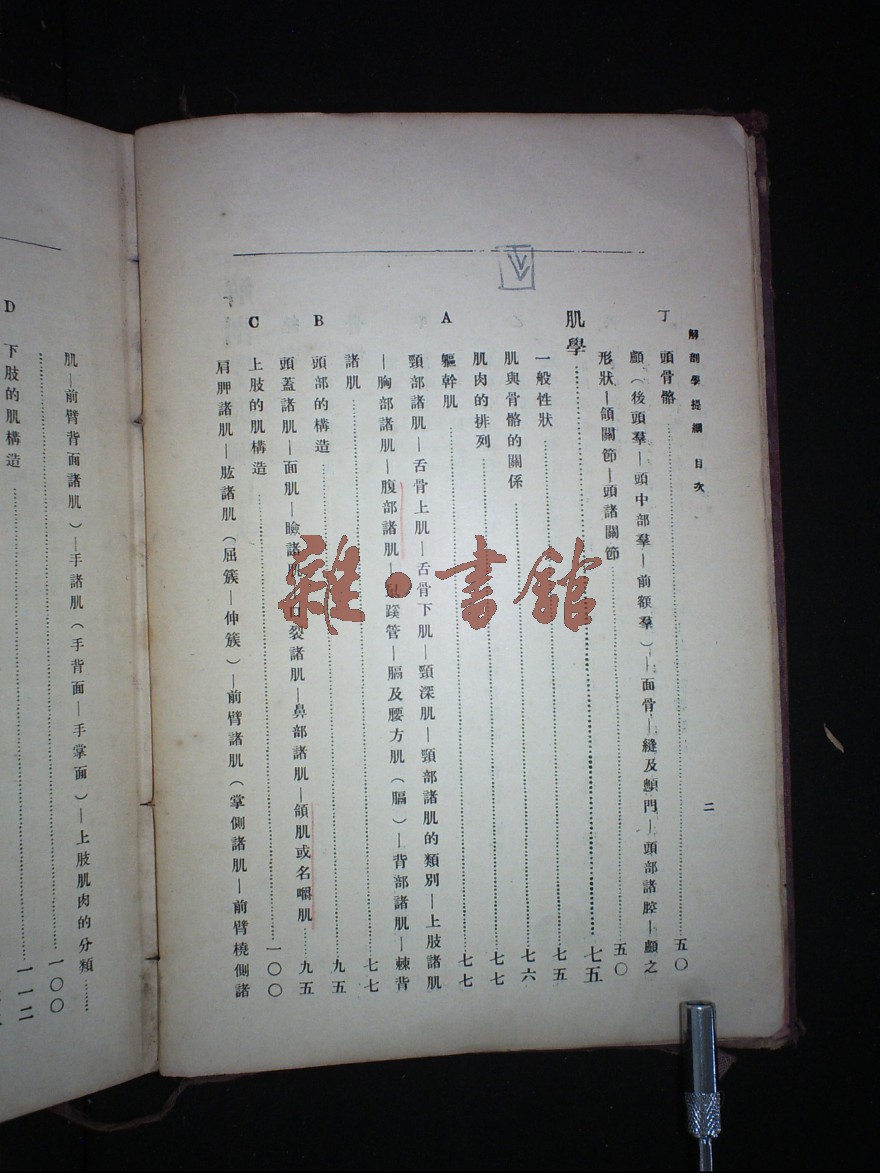 解剖學提綱 目次
二
丁 頭骨骼……五〇
顱（後頭羣—頭中部羣—前額羣）—面骨—縫及顖門—頭部諸腔—顱之
形狀—頷關節—頭諸關節……五〇
肌學……七五
一般性狀……七五
肌與骨骼的關係……七六
肌肉的排列……七七
A 軀幹肌……七七
頸部諸肌—舌骨上肌—舌骨下肌—頸深肌—頸部諸肌的類別—上肢諸肌
—胸部諸肌—腹部諸肌—鼠蹊管—膈及腰方肌（膈）—背部諸肌—棘背
諸肌……七七
B 頭部的構造……九五
頭蓋諸肌—面肌—瞼諸肌—口裂諸肌—鼻部諸肌—頷肌或名嚼肌……九五
C 上肢的肌構造……一〇〇
肩胛諸肌—肱諸肌（屈簇—伸簇）—前臂諸肌（掌側諸肌—前臂橈側諸
肌—前臂背面諸肌）—手諸肌（手背面—手掌面）—上肢肌肉的分類……
……一〇〇
D 下肢的肌構造……一一二
雜·書館